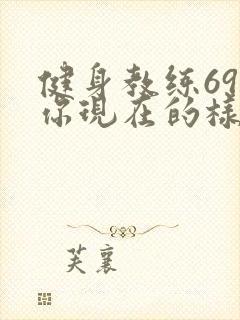 健身教练69
你现在的樣
芙襄